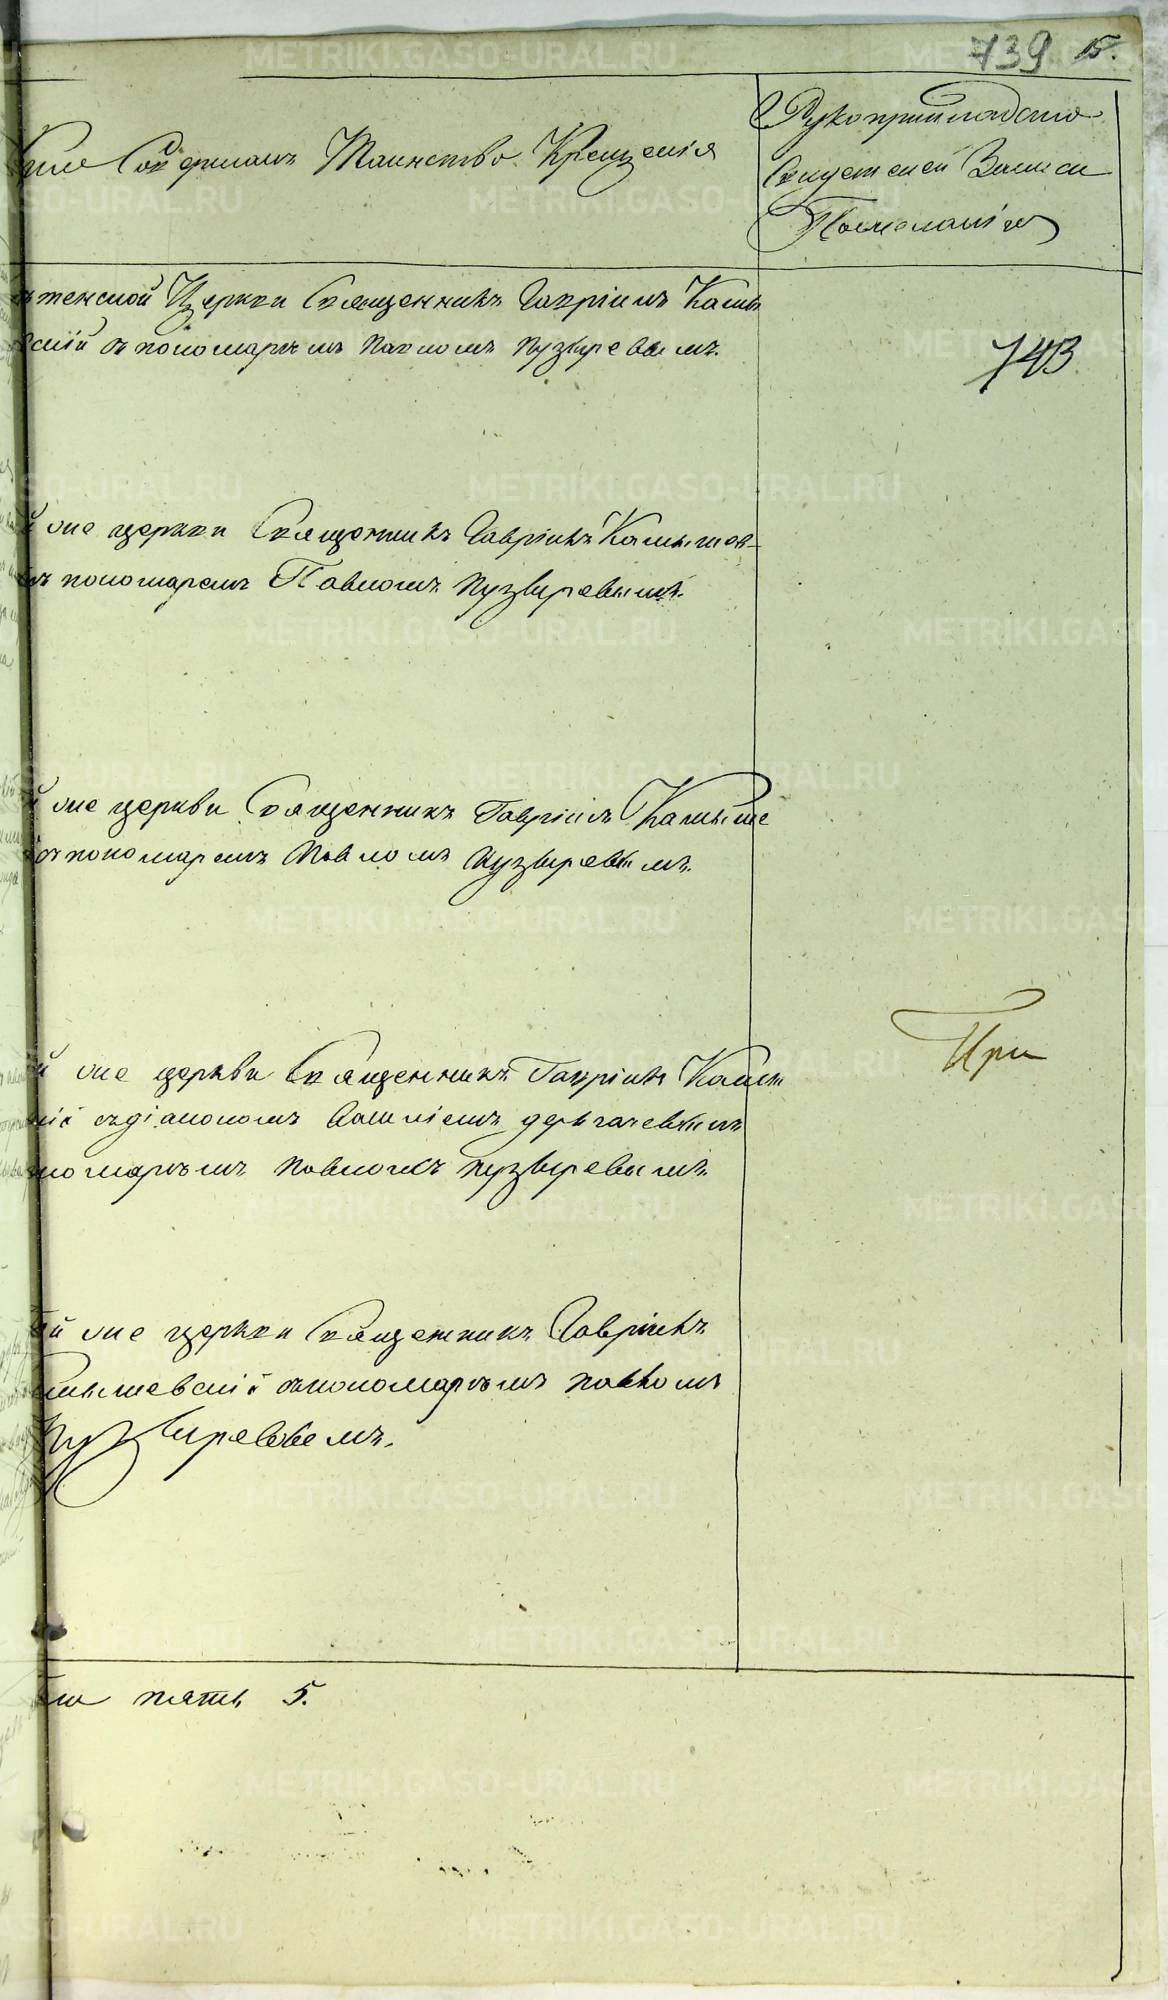 739 15.
Кто Совершалъ Таинство Крещенія
Рукоприкладство
Свидетелей Записи
По желанію
тенской Церкви Священникъ Гавріилъ Камы
скій съ пономаремъ Павломъ Пузыревымъ.
743
й же церкви Священникъ Гавріилъ Камышев-
съ пономаремъ Павломъ Пузыревымъ.
й же церкви Священникъ Гавріилъ Камыше
съ пономаремъ Павломъ Пузыревымъ.
При
й же церкви Священникъ Гавріилъ Камы
скій съ діакономъ Василіемъ Дерягачевымъ
номаремъ Павломъ Пузыревымъ
той же церкви Священникъ Гавріилъ
Камышевскій съ пономаремъ Павломъ
Пузыревымъ.
пять 5.